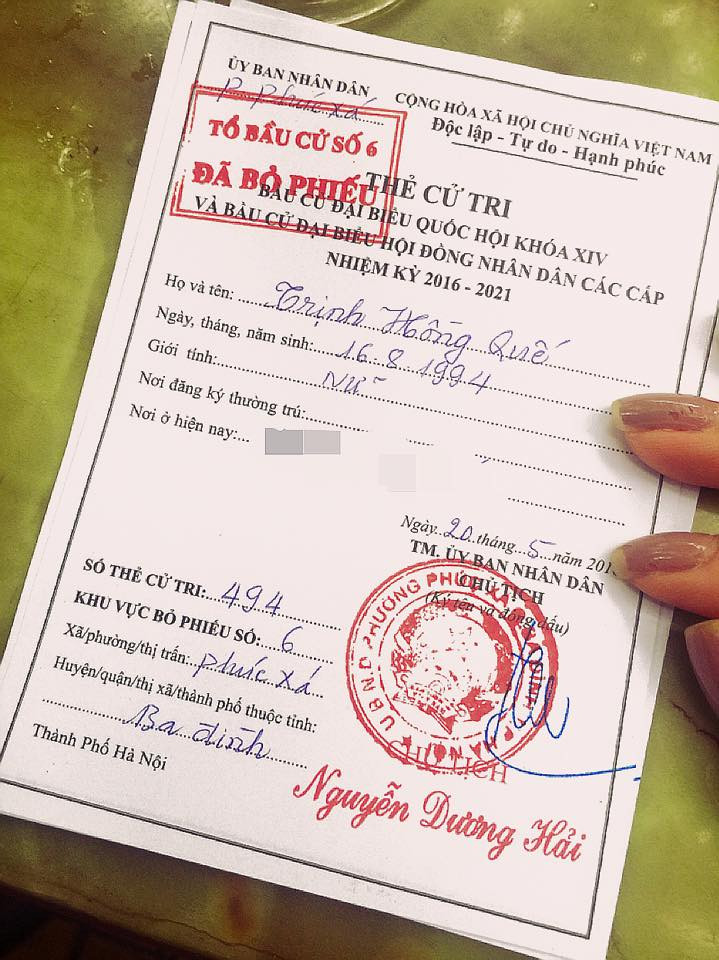 ỦY BAN NHÂN DÂN
P Phúc xá
CỘNG HÒA XÃ HỘI CHỦ NGHĨA VIỆT NAM
Độc lập - Tự do - Hạnh phúc
TỔ BẦU CỬ SỐ 6
ĐÃ BỎ PHIẾU
THẺ CỬ TRI
BẦU CỬ ĐẠI BIỂU QUỐC HỘI KHÓA XIV
VÀ BẦU CỬ ĐẠI BIỂU HỘI ĐỒNG NHÂN DÂN CÁC CẤP
NHIỆM KỲ 2016 - 2021
Họ và tên: Trịnh Hồng Quế
Ngày, tháng, năm sinh: 16.8.1994
Giới tính: Nữ
Nơi đăng ký thường trú:
Nơi ở hiện nay:
Ngày 20 tháng 5 năm 201
TM. ỦY BAN NHÂN DÂN
CHỦ TỊCH
(Ký tên và đóng dấu)
SỐ THẺ CỬ TRI: 494
KHU VỰC BỎ PHIẾU SỐ: 6
Xã/phường/thị trấn: Phúc xá
Huyện/quận/thị xã/thành phố thuộc tỉnh:
Ba đình
Thành Phố Hà Nội
U.B.N.D PHƯỜNG PHÚC XÁ
CHỦ TỊCH
Nguyễn Dương Hải